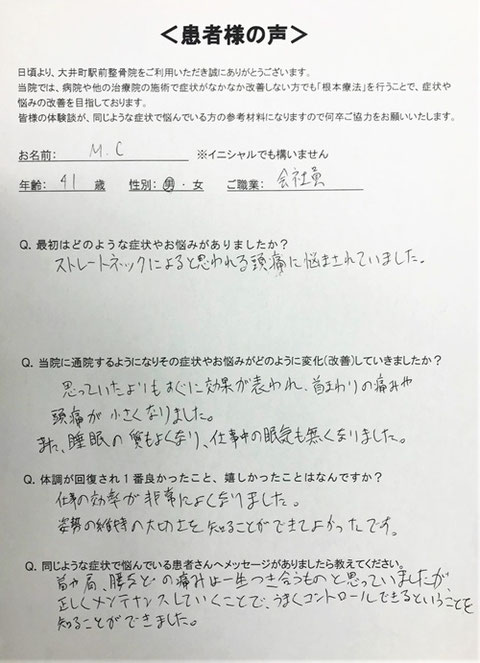 ＜患者様の声＞
日頃より、大井町駅前整骨院をご利用いただき誠にありがとうございます。
当院では、病院や他の治療院の施術で症状がなかなか改善しない方でも「根本療法」を行うことで、症状や
悩みの改善を目指しております。
皆様の体験談が、同じような症状で悩んでいる方の参考材料になりますので何卒ご協力をお願いいたします。
お名前： M.C ※イニシャルでも構いません
年齢： 41 歳 性別：男・女 ご職業： 会社員
Q. 最初はどのような症状やお悩みがありましたか？
ストレートネックによると思われる頭痛に悩まされていました。
Q. 当院に通院するようになりその症状やお悩みがどのように変化(改善)していきましたか？
思っていたよりもすぐに効果が表われ、首まわりの痛みや
頭痛が小さくなりました。
また、睡眠の質もよくなり、仕事中の眠気も無くなりました。
Q. 体調が回復され1番良かったこと、嬉しかったことはなんですか？
仕事の効率が非常によくなりました。
姿勢の維持の大切さを知ることができてよかったです。
Q. 同じような症状で悩んでいる患者さんへメッセージがありましたら教えてください。
首や肩、腰などの痛みは一生つき合うものと思っていましたが
正しくメンテナンスしていくことで、うまくコントロールできるということを
知ることができました。